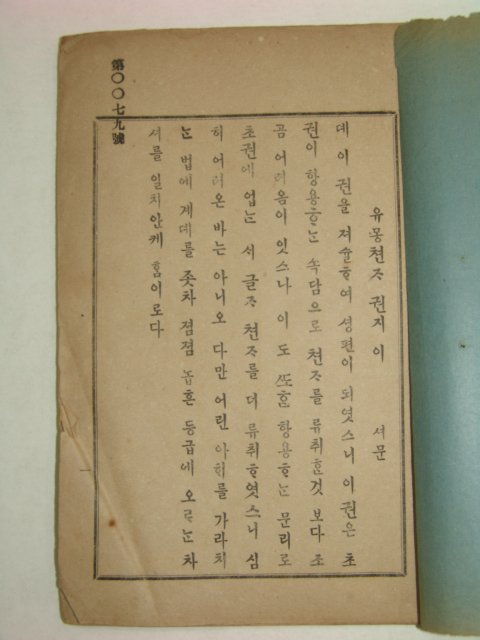 第〇〇七九號
유몽쳔ᄌᆞ 권지이 셔문
데이권을 져슐ᄒᆞ여 셩편이 되엿스니 이권은 초
권이 항용ᄒᆞᄂᆞᆫ 쇽담으로 쳔ᄌᆞ를 류취ᄒᆞᆫ것 보다 조
곰 어려옴이 잇스나 이도 ᄯᅩᄒᆞᆫ 항용ᄒᆞᄂᆞᆫ 문리로
초권에 업ᄂᆞᆫ 서 글ᄌᆞ 쳔ᄌᆞ를 더 류취ᄒᆞ엿스니 심
히 어려온 바는 아니오 다만 어린 아ᄒᆡ를 가라치
ᄂᆞᆫ 법에 계뎨를 좃차 졈졈 놉흔 등급에 오르ᄂᆞᆫ 차
셔를 일치안케 ᄒᆞᆷ이로다